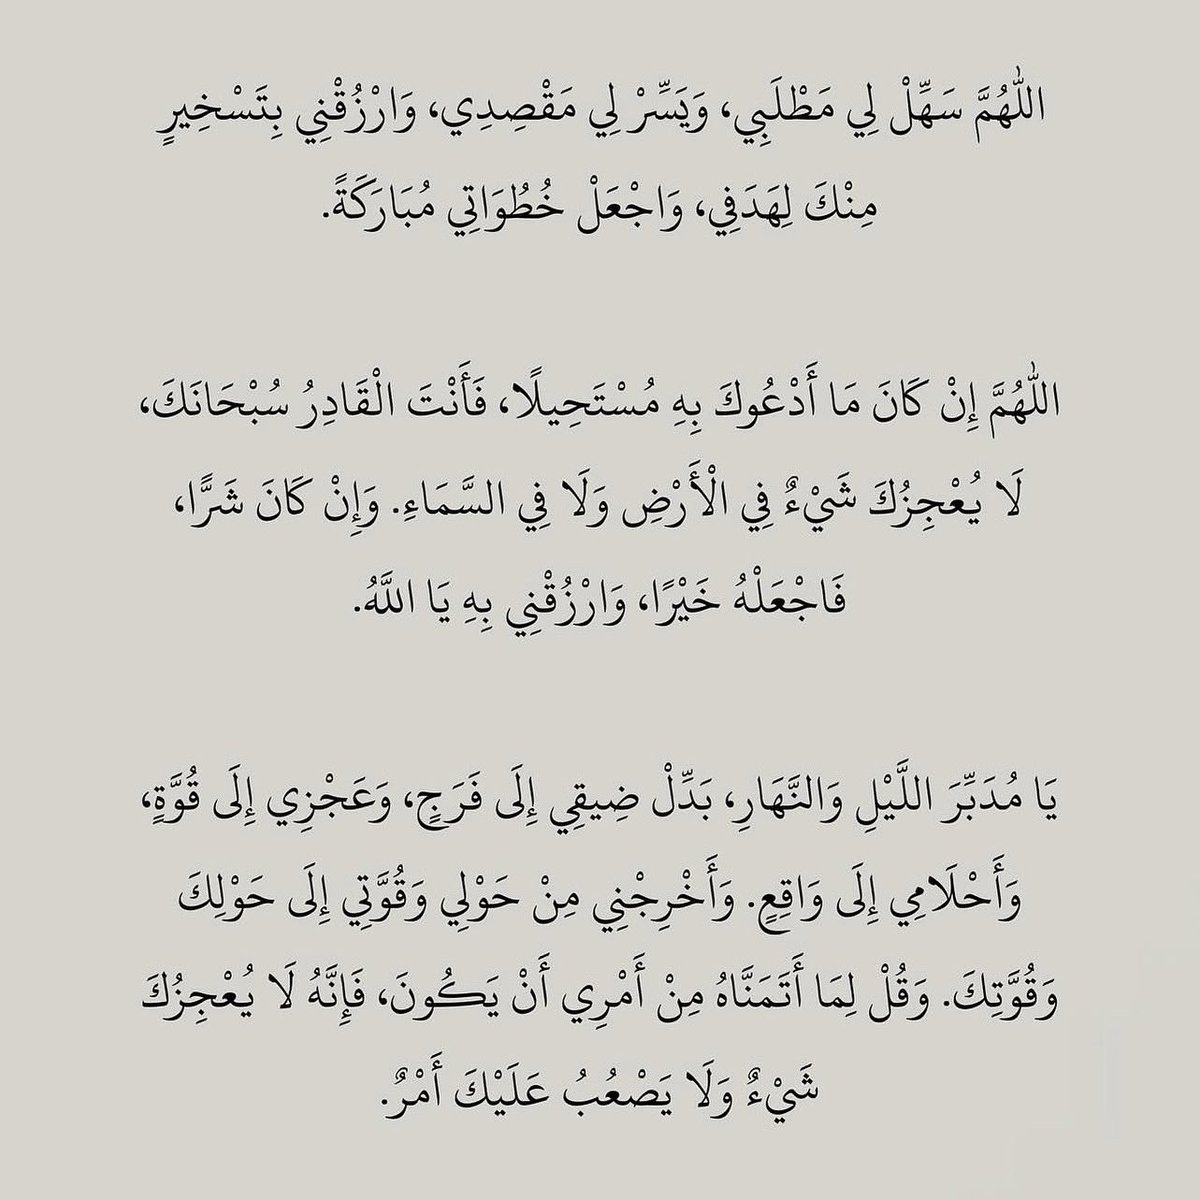 اللَّهُمَّ سَهِّلْ لِي مَطْلَبِي، وَيَسِّرْ لِي مَقْصِدِي، وَارْزُقْنِي بِتَسْخِيرٍ
مِنْكَ لِهَدَفِي، وَاجْعَلْ خُطُوَاتِي مُبَارَكَةً.
اللَّهُمَّ إِنْ كَانَ مَا أَدْعُوكَ بِهِ مُسْتَحِيلًا، فَأَنْتَ الْقَادِرُ سُبْحَانَكَ،
لَا يُعْجِزُكَ شَيْءٌ فِي الْأَرْضِ وَلَا فِي السَّمَاءِ. وَإِنْ كَانَ شَرًّا،
فَاجْعَلْهُ خَيْرًا، وَارْزُقْنِي بِهِ يَا اللَّهُ.
يَا مُدَبِّرَ اللَّيْلِ وَالنَّهَارِ، بَدِّلْ ضِيقِي إِلَى فَرَجٍ، وَعَجْزِي إِلَى قُوَّةٍ،
وَأَحْلَامِي إِلَى وَاقِعٍ. وَأَخْرِجْنِي مِنْ حَوْلِي وَقُوَّتِي إِلَى حَوْلِكَ
وَقُوَّتِكَ. وَقُلْ لِمَا أَتَمَنَّاهُ مِنْ أَمْرِي أَنْ يَكُونَ، فَإِنَّهُ لَا يُعْجِزُكَ
شَيْءٌ وَلَا يَصْعُبُ عَلَيْكَ أَمْرٌ.